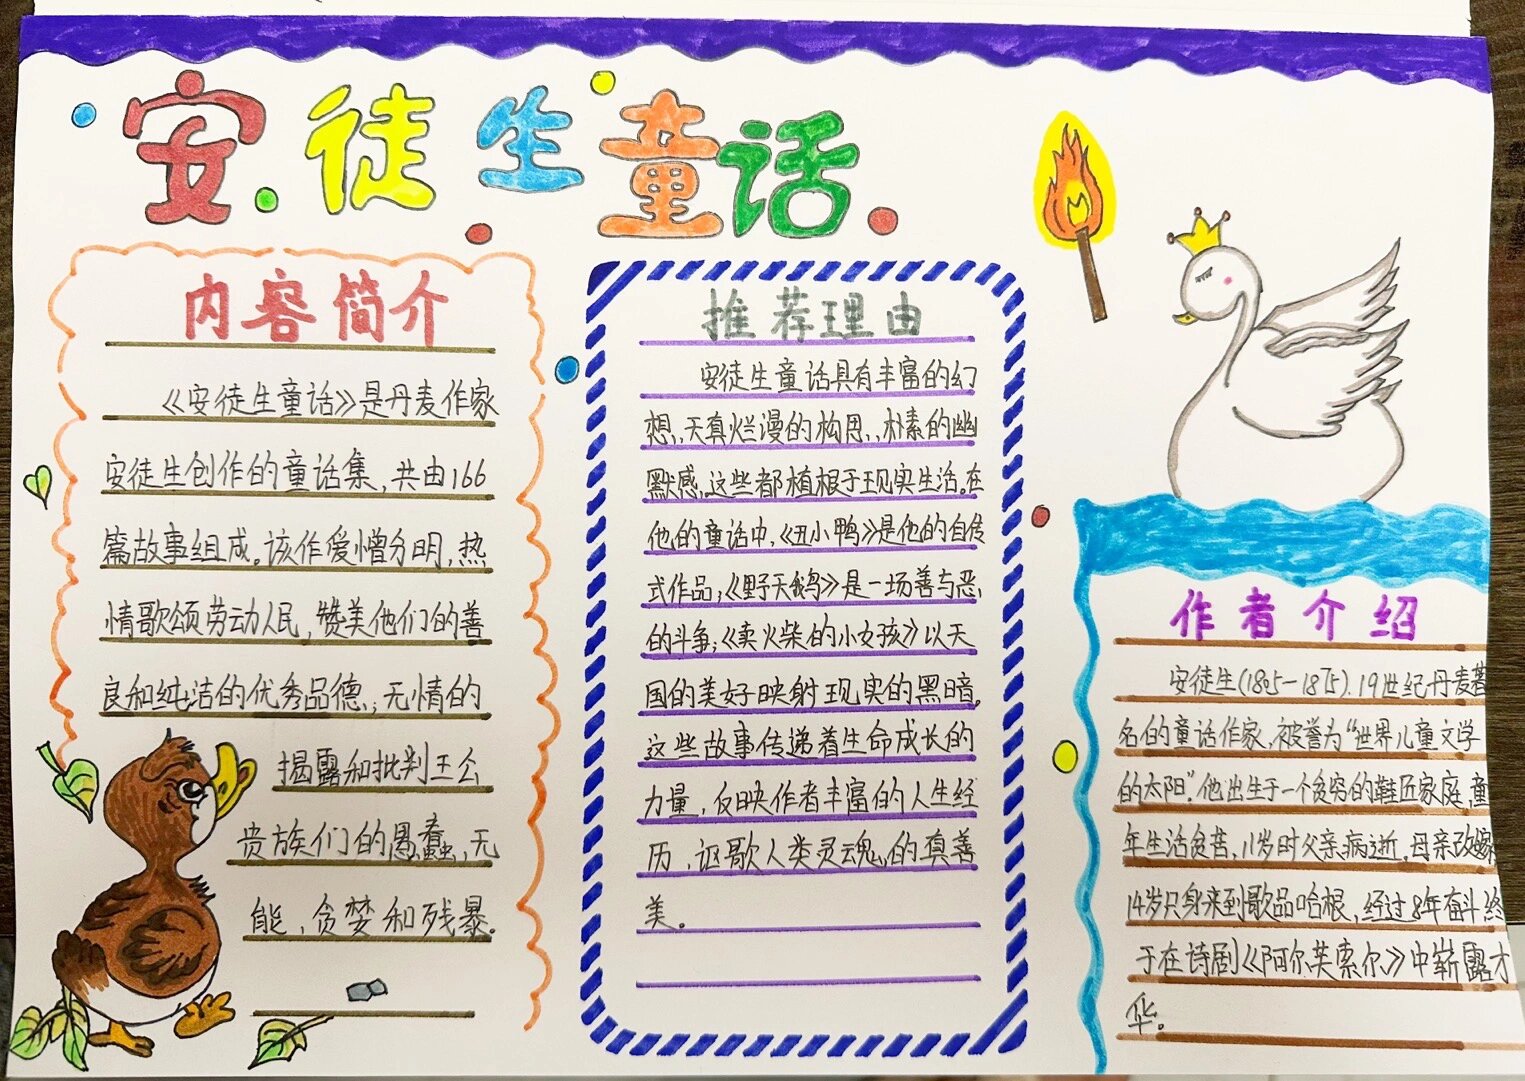 安徒生童话
内容简介
《安徒生童话》是丹麦作家
安徒生创作的童话集,共由166
篇故事组成。该作爱憎分明,热
情歌颂劳动人民,赞美他们的善
良和纯洁的优秀品德;无情的
揭露和批判王公
贵族们的愚蠢,无
能,贪婪和残暴。
推荐理由
安徒生童话具有丰富的幻
想,天真烂漫的构思,朴素的幽
默感,这些都植根于现实生活。在
他的童话中,《丑小鸭》是他的自传
式作品;《野天鹅》是一场善与恶
的斗争;《卖火柴的小女孩》以天
国的美好映射现实的黑暗。
这些故事传递着生命成长的
力量,反映作者丰富的人生经
历,讴歌人类灵魂的真善
美。
作者介绍
安徒生(1805—1875).19世纪丹麦著
名的童话作家,被誉为“世界儿童文学
的太阳”。他出生于一个贫穷的鞋匠家庭,童
年生活贫苦,11岁时父亲病逝,母亲改嫁
14岁只身来到歌品哈根,经过8年奋斗终
于在诗剧《阿尔芙索尔》中崭露才
华。